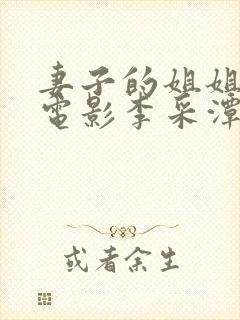 妻子的姐姐
電影李采潭
或者余生